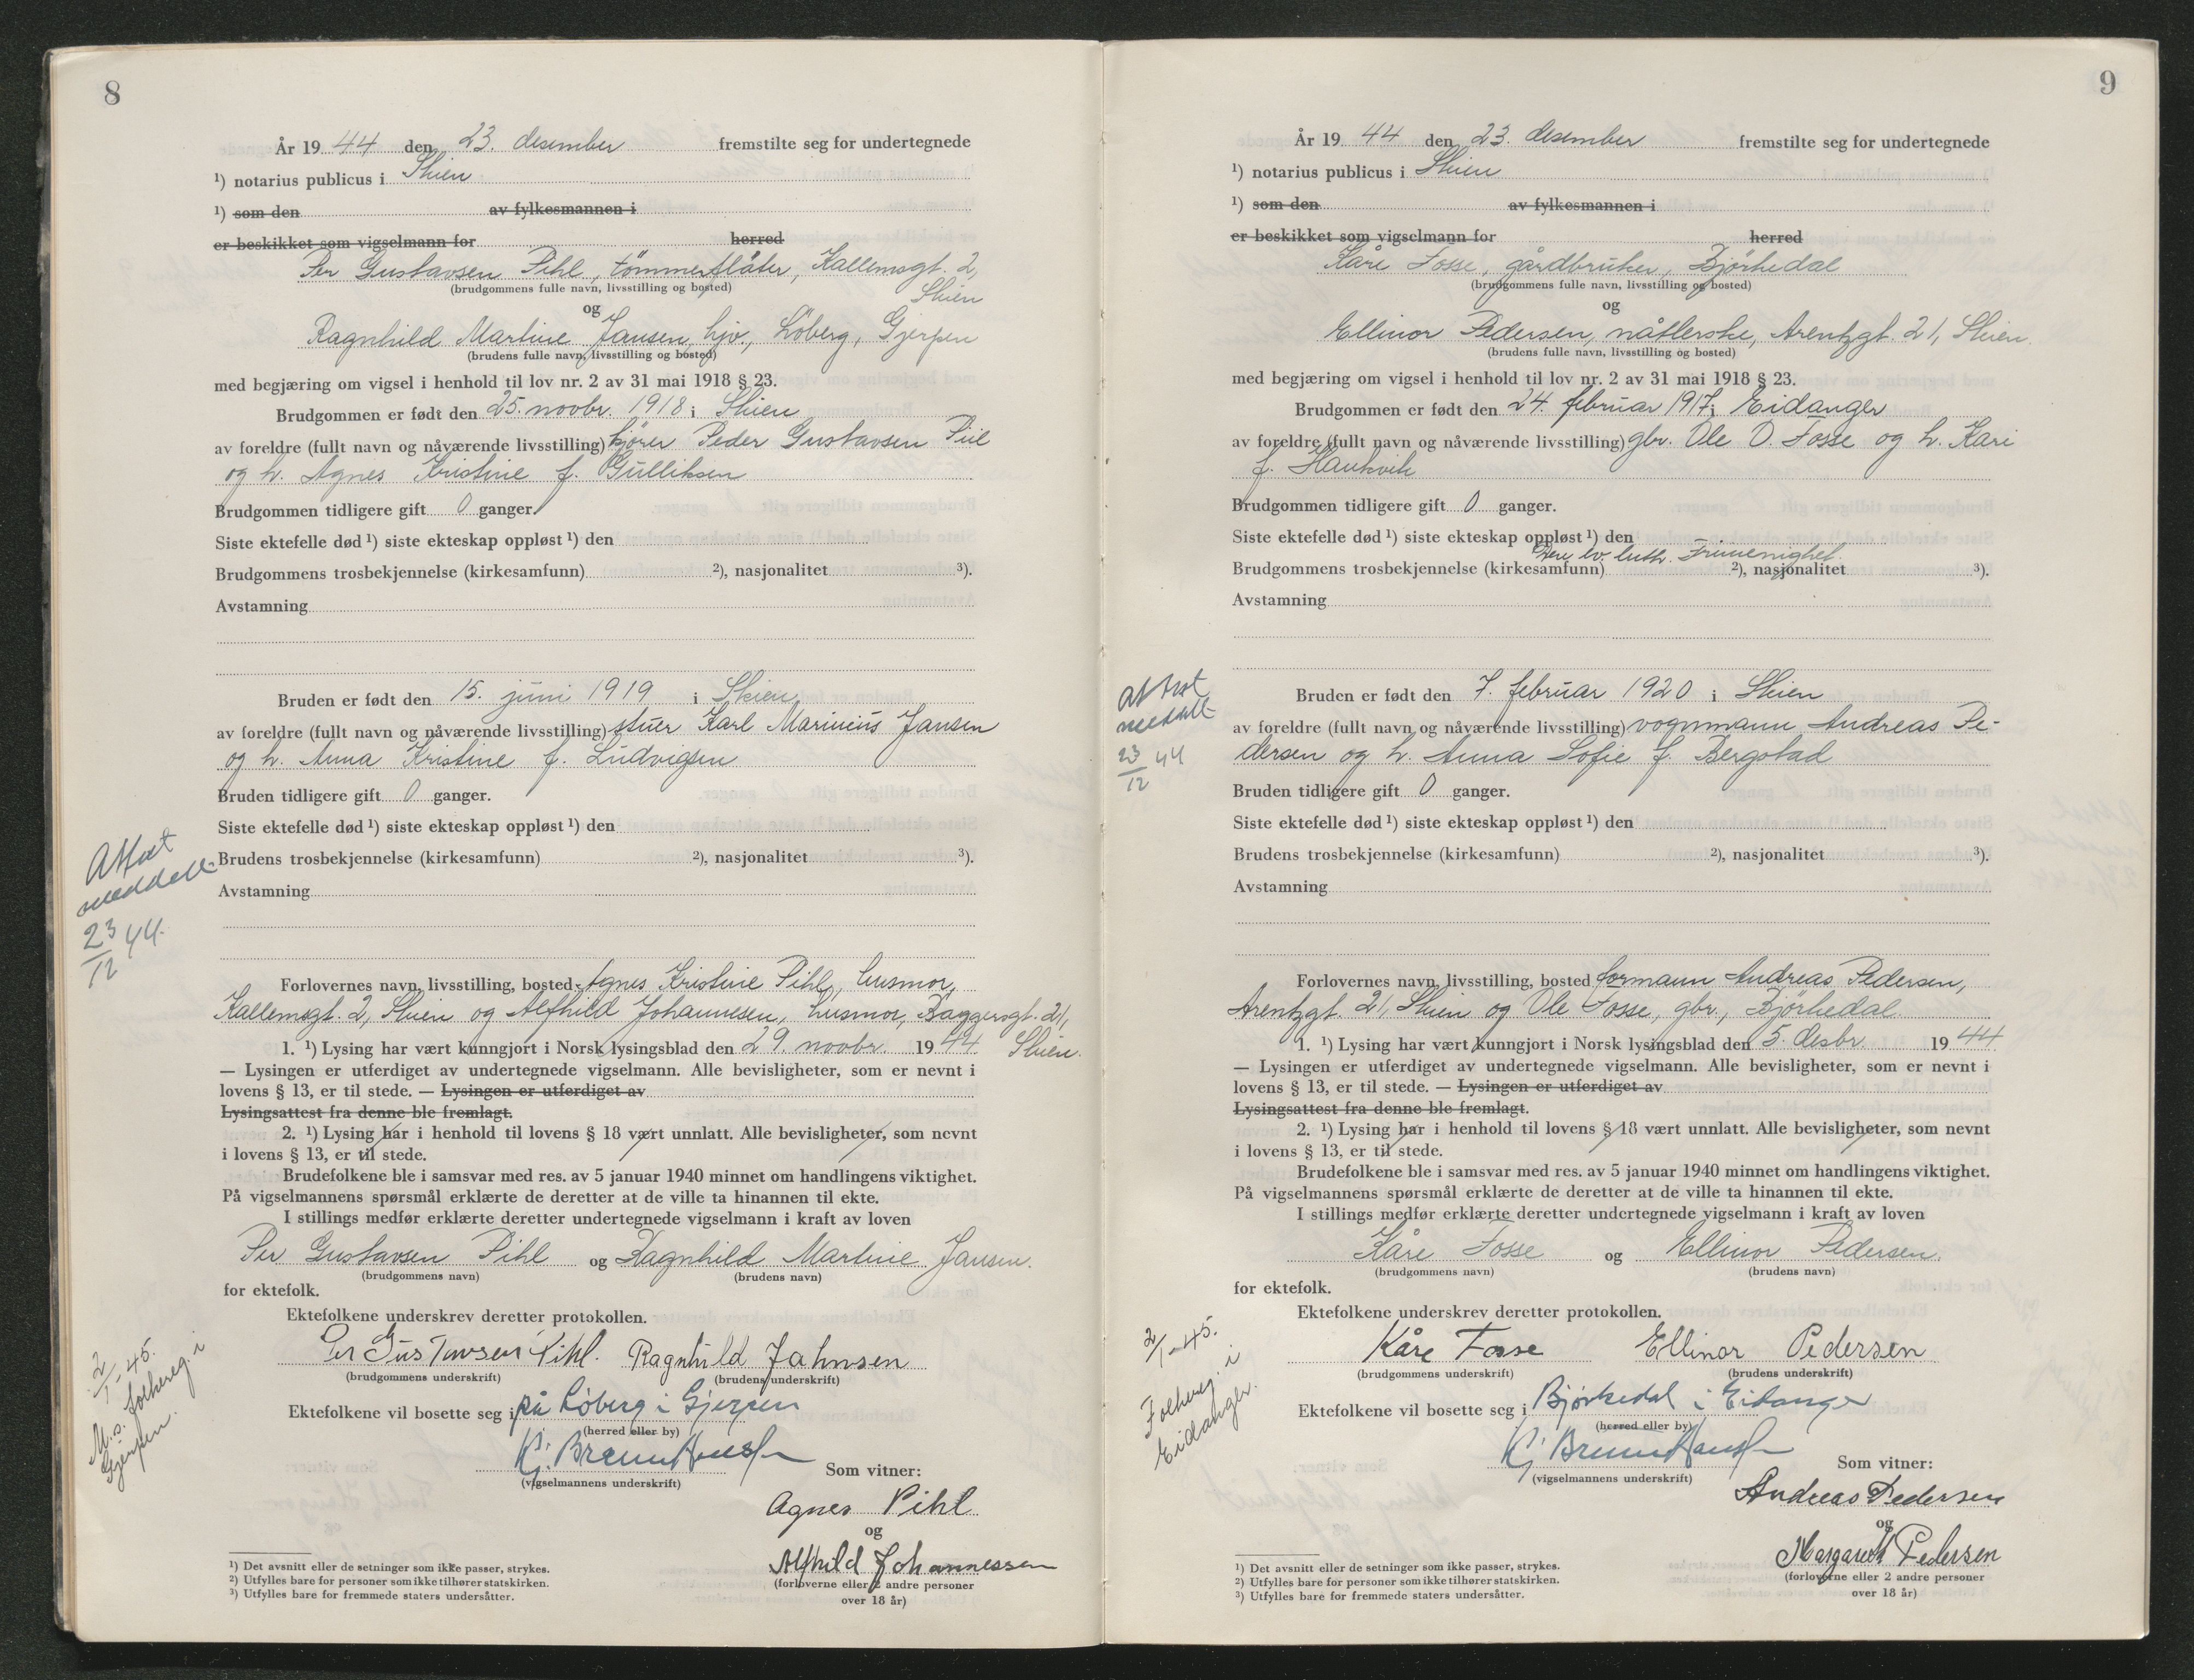 8
År 19 44 den 23. desember fremstilte seg for undertegnede
¹) notarius publicus i Skien
¹) som den av fylkesmannen i
er beskikket som vigselmann for herred
Per Gustavsen Pihl, tömmerflåter, Kallemsgt. 2,
(brudgommens fulle navn, livsstilling og bosted)
Skien
og
Ragnhild Martine Jansen, hjv., Löberg, Gjerpen
(brudens fulle navn, livsstilling og bosted)
med begjæring om vigsel i henhold til lov nr. 2 av 31 mai 1918 § 23.
Brudgommen er født den 25. novbr. 1918 i Skien
av foreldre (fullt navn og nåværende livsstilling) kjörer Peder Gustavsen Piil
og h. Agnes Kristine f. Gulliksen
Brudgommen tidligere gift 0 ganger.
Siste ektefelle død ¹) siste ekteskap oppløst ¹) den
Brudgommens trosbekjennelse (kirkesamfunn) ²), nasjonalitet ³).
Avstamning
Bruden er født den 15. juni 1919 i Skien
av foreldre (fullt navn og nåværende livsstilling) stuer Karl Marinius Jansen
og h. Anna Kristine f. Ludvigsen
Bruden tidligere gift 0 ganger.
Siste ektefelle død ¹) siste ekteskap oppløst ¹) den
Brudens trosbekjennelse (kirkesamfunn) ²), nasjonalitet ³).
Avstamning
Attest
meddelt
23/12 44.
Forlovernes navn, livsstilling, bosted Agnes Kristine Pihl, husmor,
Kallemsgt. 2, Skien og Alfhild Johannesen, husmor, Baggersgt. 21,
Skien.
1. ¹) Lysing har vært kunngjort i Norsk lysingsblad den 29. novbr. 19 44.
— Lysingen er utferdiget av undertegnede vigselmann. Alle bevisligheter, som er nevnt i
lovens § 13, er til stede. — Lysingen er utferdiget av
Lysingsattest fra denne ble fremlagt.
2. ¹) Lysing har i henhold til lovens § 18 vært unnlatt. Alle bevisligheter, som nevnt
i lovens § 13, er til stede.
Brudefolkene ble i samsvar med res. av 5 januar 1940 minnet om handlingens viktighet.
På vigselmannens spørsmål erklærte de deretter at de ville ta hinannen til ekte.
I stillings medfør erklærte deretter undertegnede vigselmann i kraft av loven
Per Gustavsen Pihl og Ragnhild Martine Jansen.
(brudgommens navn) (brudens navn)
for ektefolk.
Ektefolkene underskrev deretter protokollen.
Per Gustavsen Pihl. Ragnhild Jahnsen
(brudgommens underskrift) (brudens underskrift)
Ektefolkene vil bosette seg i på Løberg i Gjerpen
(herred eller by)
2/1-45.
M.s. folkereg. i
Gjerpen.
(vigselmannens underskrift)
Som vitner:
Agnes Pihl
og
Alfhild Johannessen
(forloverne eller 2 andre personer
over 18 år)
¹) Det avsnitt eller de setninger som ikke passer, strykes.
²) Utfylles bare for personer som ikke tilhører statskirken.
³) Utfylles bare for fremmede staters undersåtter.
9
År 19 44 den 23. desember fremstilte seg for undertegnede
¹) notarius publicus i Skien
¹) som den av fylkesmannen i
er beskikket som vigselmann for herred
Kåre Fosse, gårdbruker, Bjørkedal
(brudgommens fulle navn, livsstilling og bosted)
og
Ellinor Pedersen, nåtlerske, Arentzgt. 21, Skien.
(brudens fulle navn, livsstilling og bosted)
med begjæring om vigsel i henhold til lov nr. 2 av 31 mai 1918 § 23.
Brudgommen er født den 24. februar 1917 i Eidanger
av foreldre (fullt navn og nåværende livsstilling) gbr. Ole O. Fosse og h. Kari
f. Haukvik
Brudgommen tidligere gift 0 ganger.
Siste ektefelle død ¹) siste ekteskap oppløst ¹) den
Den ev. luth. Frimenighet.
Brudgommens trosbekjennelse (kirkesamfunn) ²), nasjonalitet ³).
Avstamning
Attest
meddelt
23/12 44
Bruden er født den 7. februar 1920 i Skien
av foreldre (fullt navn og nåværende livsstilling) vognmann Andreas Pe-
dersen og h. Anna Sofie f. Bergstad
Bruden tidligere gift 0 ganger.
Siste ektefelle død ¹) siste ekteskap oppløst ¹) den
Brudens trosbekjennelse (kirkesamfunn) ²), nasjonalitet ³).
Avstamning
Forlovernes navn, livsstilling, bosted formann Andreas Pedersen,
Arentzgt. 21, Skien og Ole Fosse, gbr., Bjørkedal.
1. ¹) Lysing har vært kunngjort i Norsk lysingsblad den 5. desbr. 19 44.
— Lysingen er utferdiget av undertegnede vigselmann. Alle bevisligheter, som er nevnt i
lovens § 13, er til stede. — Lysingen er utferdiget av
Lysingsattest fra denne ble fremlagt.
2. ¹) Lysing har i henhold til lovens § 18 vært unnlatt. Alle bevisligheter, som nevnt
i lovens § 13, er til stede.
Brudefolkene ble i samsvar med res. av 5 januar 1940 minnet om handlingens viktighet.
På vigselmannens spørsmål erklærte de deretter at de ville ta hinannen til ekte.
I stillings medfør erklærte deretter undertegnede vigselmann i kraft av loven
Kåre Fosse og Ellinor Pedersen.
(brudgommens navn) (brudens navn)
for ektefolk.
Ektefolkene underskrev deretter protokollen.
Kåre Fosse Ellinor Pedersen
(brudgommens underskrift) (brudens underskrift)
Ektefolkene vil bosette seg i Bjørkedal i Eidanger
(herred eller by)
2/1-45.
Folkereg. i
Eidanger.
(vigselmannens underskrift)
Som vitner:
Andreas Pedersen
og
Margareth Pedersen
(forloverne eller 2 andre personer
over 18 år)
¹) Det avsnitt eller de setninger som ikke passer, strykes.
²) Utfylles bare for personer som ikke tilhører statskirken.
³) Utfylles bare for fremmede staters undersåtter.